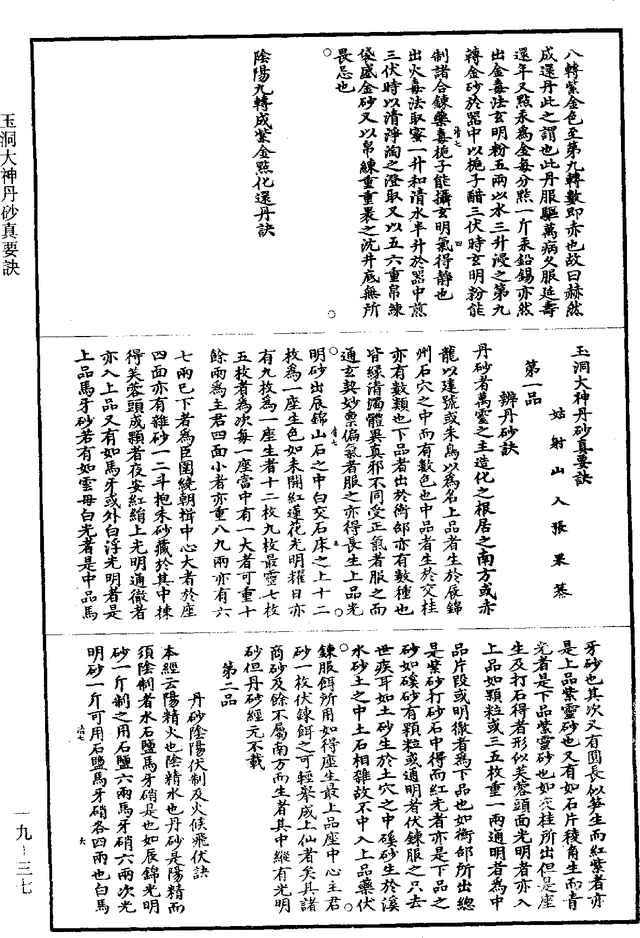 玉洞大神丹砂真要訣
一九—三七
八轉紫金色至第九轉數即赤也故曰赫然
成還丹此之謂也此丹服驅萬病久服延壽
還年又點汞為金每分點一斤汞鉛錫亦然
出金毒法玄明粉五兩以水三升浸之第九
轉金砂於器中以梔子醋三伏時玄明粉能
制諸合鍊藥毒梔子能攝玄明氣得靜也
出火毒法取蜜一升和清水半升於器中煎
三伏時以清淨淘之澄取又以五六重帛練
袋盛金砂又以帛練重重裹之沈井底無所
畏忌也
陰陽九轉成紫金點化還丹訣
玉洞大神丹砂真要訣
姑射山人張果纂
第一品
辨丹砂訣
丹砂者萬靈之主造化之根居之南方或赤
龍以建號或朱鳥以為名上品者生於辰錦
州石穴之中而有數色也中品者生於交桂
亦有數類也下品者出於衡邵亦有數種也
皆緣清濁體異真邪不同受正氣者服之而
通玄契妙稟偏氣者服之亦得長生上品光
明砂出辰錦山石之中白交石床之上十二
枚為一座生色如未開紅蓮花光明耀日亦
有九枚為一座生者十二枚九枚最靈七枚
五枚者為次每一座當中有一大者可重十
餘兩為主君四面小者亦重八九兩亦有六
七兩已下者為臣圍繞朝揖中心大者於座
四面亦有雜砂一二斗抱朱砂藏於其中揀
得芙蓉頭成顆者夜安紅絹上光明通徹者
亦入上品又有如馬牙或外白浮光明者是
上品馬牙砂若有如雲母白光者是中品馬
牙砂也其次又有圓長似笋生而紅紫者亦
是上品紫靈砂也又有如石片稜角生而青
光者是下品紫靈砂也如交桂所出但是座
生及打石得者形似芙蓉頭面光明者亦入
上品如顆粒或三五枚重一兩通明者為中
品片段或明徹者為下品也如衡邵所出總
是紫砂打砂石中得而紅光者亦是下品之
砂如磎砂有顆粒或通明者伏鍊服之只去
世疾耳如土砂生於土穴之中磎砂生於溪
水砂土之中土石相雜故不中入上品藥伏
鍊服餌所用如得座生最上品座中心主君
砂一枚伏鍊餌之可輕舉成上仙者矣其諸
商砂及餘不屬南方而生者其中縱有光明
砂但丹砂經元不載
第二品
丹砂陰陽伏制及火候飛伏訣
本經云陽精火也陰精水也丹砂是陽精而
須陰制者水石鹽馬牙硝是也如辰錦光明
砂一斤制之用石鹽六兩馬牙硝六兩次光
明砂一斤可用石鹽馬牙硝各四兩也白馬